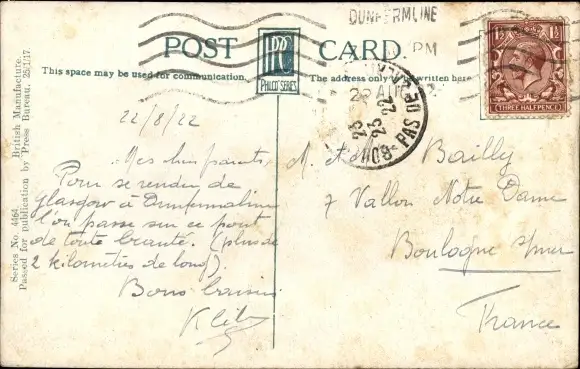 DUNFERMLINE
PM
22 AUG
POST CARD.
PRC
PHILCO SERIES
This space may be used for communication.
The address only written here
THREE HALFPENCE
1½ 1½
PAS DE CALAIS
23
22
Series No. 4464. British Manufacture.
Passed for publication by Press Bureau, 25/1/17.
22/8/22
Mes chers parents,
Pour se rendre de
Glasgow à Dunfermline
l'on passe sur ce pont
de toute beauté. (plus de
2 kilomètres de long).
Bons baisers
M. Bailly
7 Vallon Notre Dame
Boulogne s/mer
France